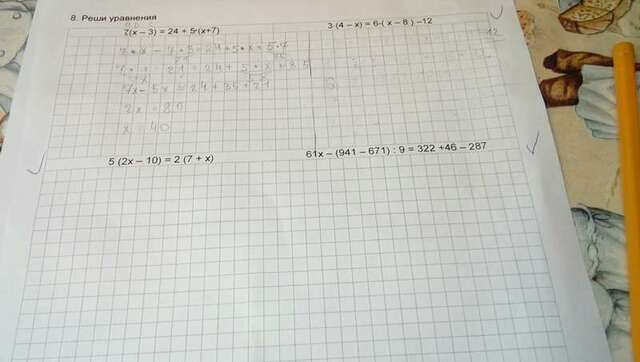 8. Реши уравнения
7(x – 3) = 24 + 5·(x+7)
3·(4 – x) = 6·( x – 8 ) –12
7·x – 7·3 = 24 + 5·x + 5·7
7x – 5x = 24 + 35 + 21
2x = 80
x = 40
12
5 (2x – 10) = 2 (7 + x)
61x – (941 – 671) : 9 = 322 +46 – 287